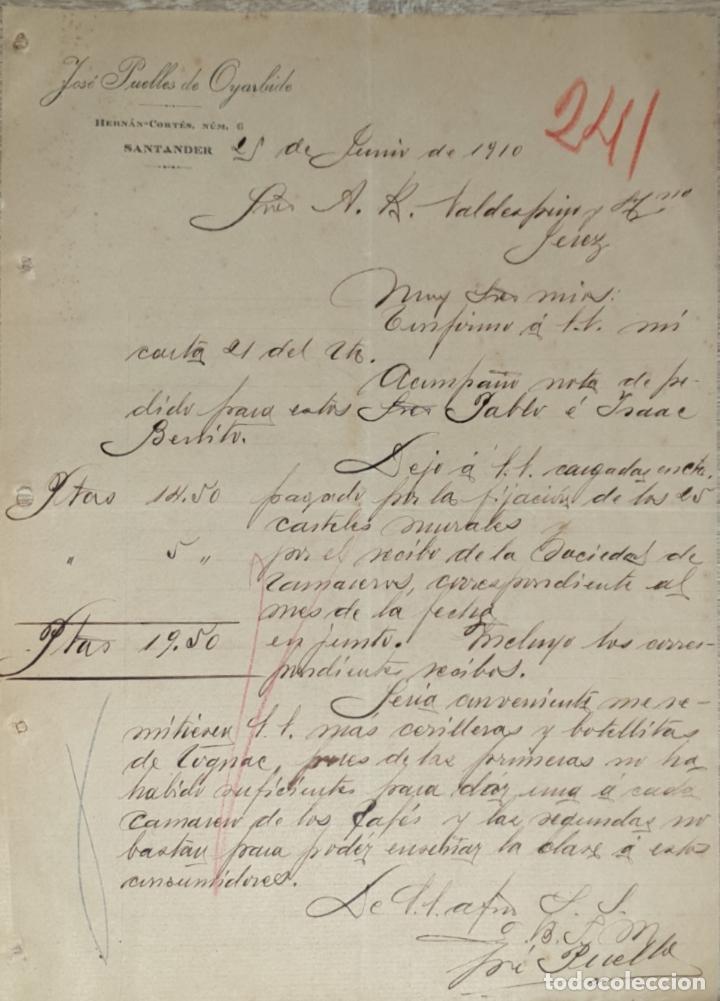 José Puelles de Oyarbide
HERNÁN-CORTÉS, NÚM. 6
SANTANDER 25 de Junio de 1910
241
Sres A. R. Valdespino y Hno
Jerez
Muy Sres mios:
Confirmo á S.S. mi
carta 21 del
Acompaño nota de pe-
dido para estos Sres Pablo é Isaac
Benito.
Dejo á S.S. cargadas en cta.
Ptas 14.50 pagado por la fijación de los 25
carteles murales y
" 5 " por el recibo de la Sociedad de
Camareros, correspondiente al
mes de la fecha
Ptas 19.50 en junto. Incluyo los corres-
pondientes recibos.
Seria conveniente me re-
mitiesen S.S. mas cerilleras y botellitas
de Cognac, pues de las primeras no ha
habido suficientes para dar una á cada
camarero de los Cafés y las segundas no
bastan para poder enseñar la clase á estos
consumidores.
De S.S. afmo S. S.
q. B. S. M
José Puelles
todocoleccion